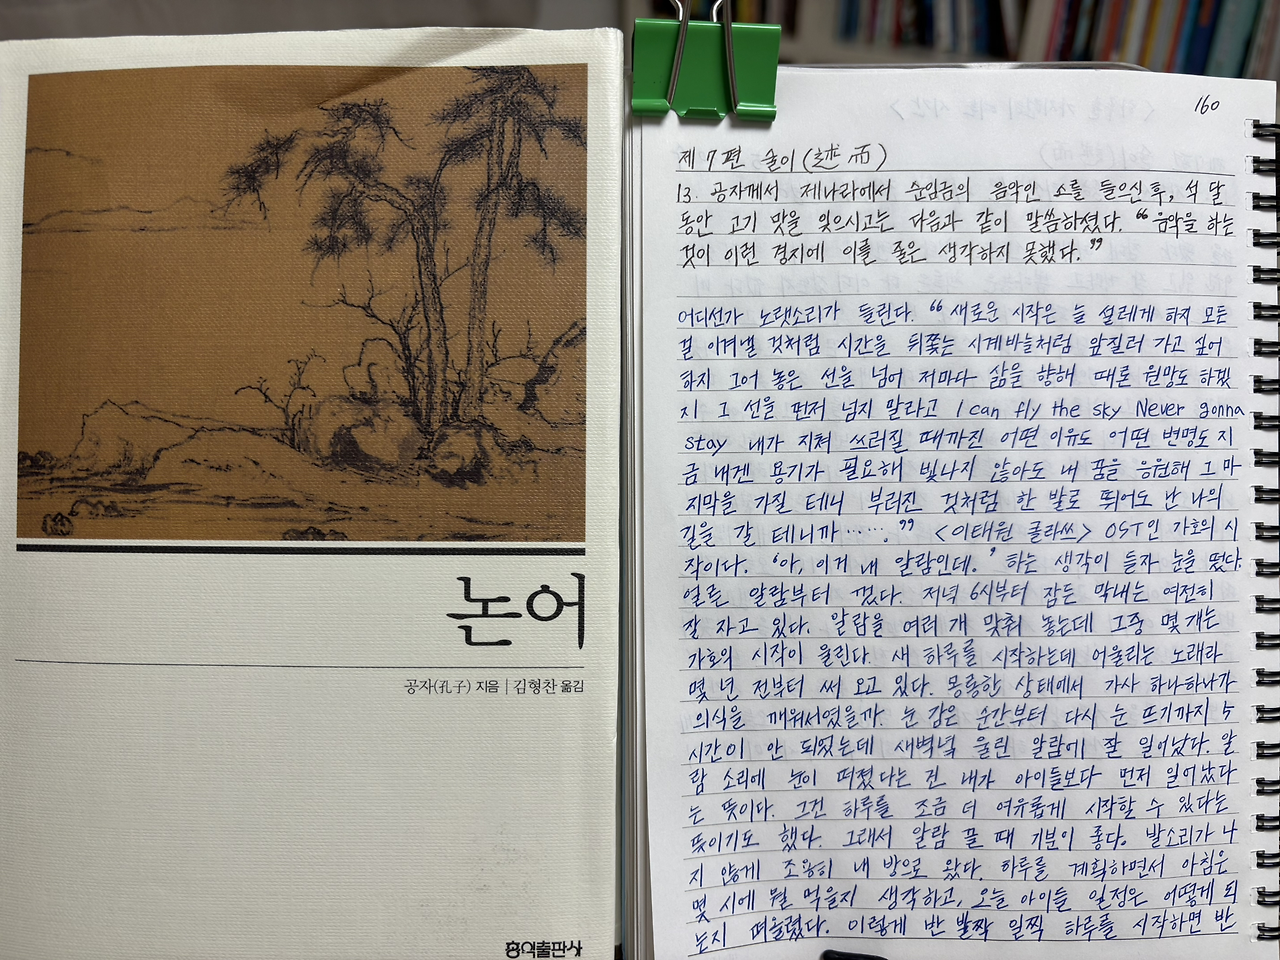 논어
공자(孔子) 지음 | 김형찬 옮김
홍익출판사
160
제 7 편 술이 (述而)
13. 공자께서 제나라에서 순임금의 음악인 소를 들으신 후, 석 달
동안 고기 맛을 잊으시고는 다음과 같이 말씀하셨다. “음악을 하는
것이 이런 경지에 이를 줄은 생각하지 못했다.”
어디선가 노랫소리가 들린다. “새로운 시작은 늘 설레게 하지 모든
걸 이겨낼 것처럼 시간을 뒤쫓는 시계바늘처럼 앞질러 가고 싶어
하지 그어 놓은 선을 넘어 저마다 삶을 향해 때론 원망도 하겠
지 그 선을 먼저 넘지 말라고 I can fly the sky Never gonna
stay 내가 지쳐 쓰러질 때까진 어떤 이유도 어떤 변명도 지
금 내겐 용기가 필요해 빛나지 않아도 내 꿈을 응원해 그 마
지막을 가질 테니 부러진 것처럼 한 발로 뛰어도 난 나의
길을 갈 테니까…….” <이태원 클라쓰> OST인 가호의 시
작이다. ‘아, 이거 내 알람인데.’ 하는 생각이 들자 눈을 떴다.
얼른 알람부터 껐다. 저녁 6시부터 잠든 막내는 여전히
잘 자고 있다. 알람을 여러 개 맞춰 놓는데 그중 몇 개는
가호의 시작이 울린다. 새 하루를 시작하는데 어울리는 노래라
몇 년 전부터 써 오고 있다. 몽롱한 상태에서 가사 하나하나가
의식을 깨워서였을까. 눈 감은 순간부터 다시 눈 뜨기까지 5
시간이 안 되었는데 새벽녘 울린 알람에 잘 일어났다. 알
람 소리에 눈이 떠졌다는 건 내가 아이들보다 먼저 일어났다
는 뜻이다. 그건 하루를 조금 더 여유롭게 시작할 수 있다는
뜻이기도 했다. 그래서 알람 끌 때 기분이 좋다. 발소리가 나
지 않게 조용히 내 방으로 왔다. 하루를 계획하면서 아침은
몇 시에 뭘 먹을지 생각하고, 오늘 아이들 일정은 어떻게 되
는지 떠올렸다. 이렇게 반 발짝 일찍 하루를 시작하면 반